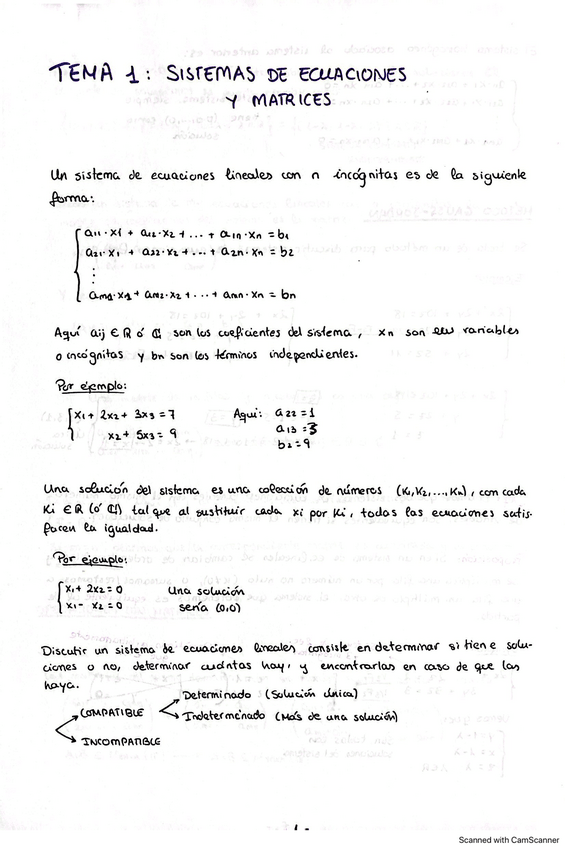 TEMA 1: SISTEMAS DE ECUACIONES
Y MATRICES
Un sistema de ecuaciones lineales con n incógnitas es de la siguiente
forma:
a11·x1 + a12·x2 + ... + a1n·xn = b1
a21·x1 + a22·x2 + ... + a2n·xn = b2
⋮
am1·x1 + am2·x2 + ... + amn·xn = bn
Aquí aij ∈ R ó ℂ son los coeficientes del sistema, xn son las variables
o incógnitas y bn son los términos independientes.
Por ejemplo:
x1 + 2x2 + 3x3 = 7 Aquí: a22 = 1
a13 = 3
x2 + 5x3 = 9
b2 = 9
Una solución del sistema es una colección de números (K1, K2, ..., Kn), con cada
Ki ∈ R (ó ℂ) tal que al sustituir cada xi por Ki, todas las ecuaciones satis-
facen la igualdad.
Por ejemplo:
x1 + 2x2 = 0 Una solución
x1 - x2 = 0 sería (0,0)
Discutir un sistema de ecuaciones lineales consiste en determinar si tiene solu-
ciones o no, determinar cuántas hay, y encontrarlas en caso de que las
haya.
Determinado (Solución única)
COMPATIBLE
Indeterminado (Más de una solución)
INCOMPATIBLE
Scanned with CamScanner